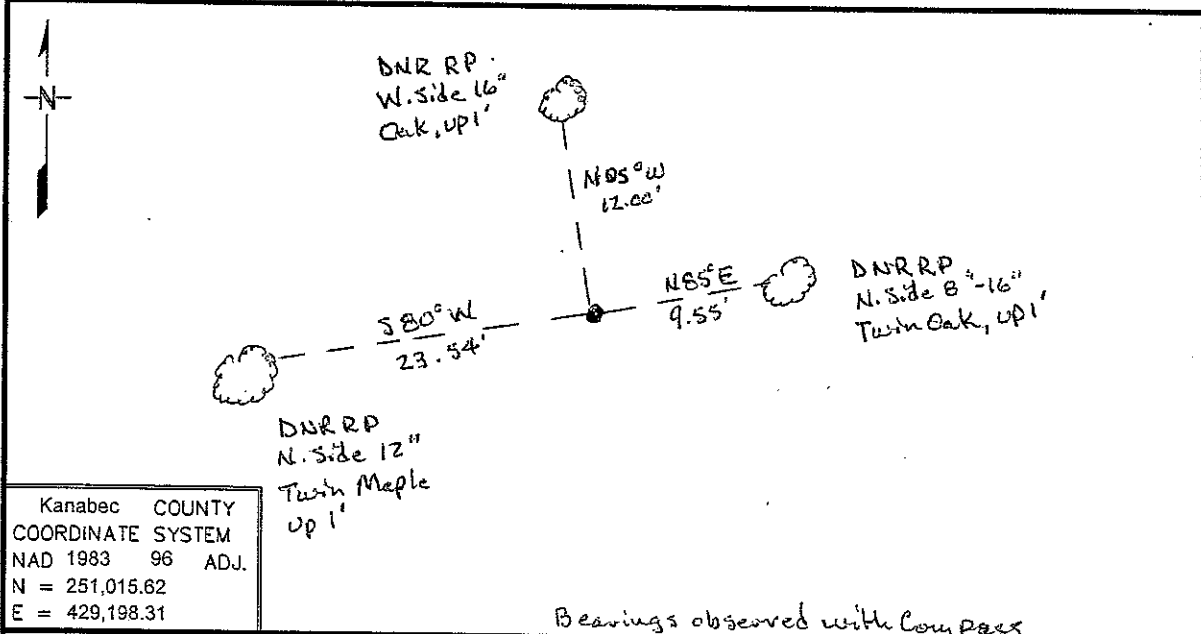 N
DNR RP.
W. Side 16"
Oak, up 1'
N05°W
12.00'
N85°E
9.55'
DNR RP
N. Side 8"-16"
Twin Oak, up 1'
S80°W
23.54'
DNR RP
N. Side 12"
Twin Maple
up 1'
Kanabec COUNTY
COORDINATE SYSTEM
NAD 1983 96 ADJ.
N = 251,015.62
E = 429,198.31
Bearings observed with Compass